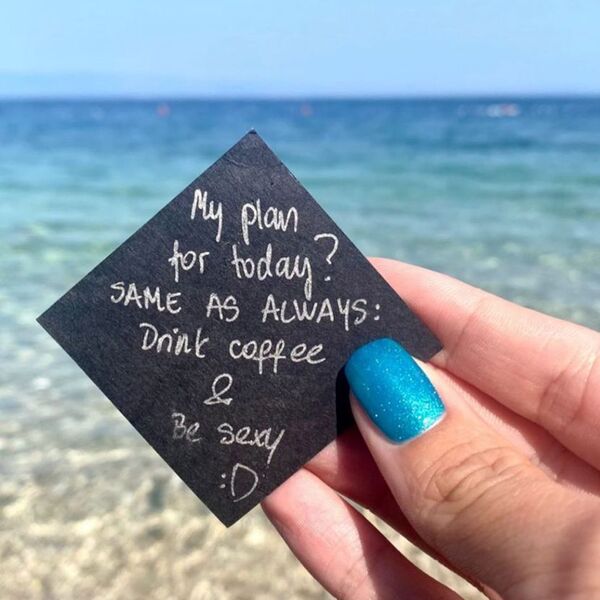 My plan
for today?
SAME AS ALWAYS:
Drink coffee
&
Be sexy
:D